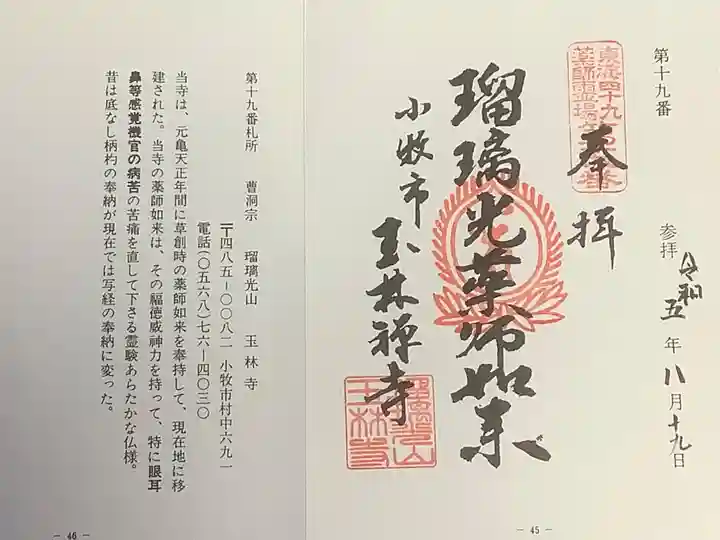 第十九番
参拝 令和五年八月十九日
東海四十九
薬師霊場第十九番
奉拝
瑠璃光薬師如来
小牧市 玉林禅寺
瑠璃光山
玉林寺
− 45 −
第十九番札所 曹洞宗 瑠璃光山 玉林寺
〒四八五−〇〇八二 小牧市村中六九一
電話(〇五六八)七六−四〇三〇
当寺は、元亀天正年間に草創時の薬師如来を奉持して、現在地に移
建された。当寺の薬師如来は、その福徳威神力を持って、特に眼耳
鼻等感覚機官の病苦の苦痛を直して下さる霊験あらたかな仏様。
昔は底なし柄杓の奉納が現在では写経の奉納に変った。
− 46 −